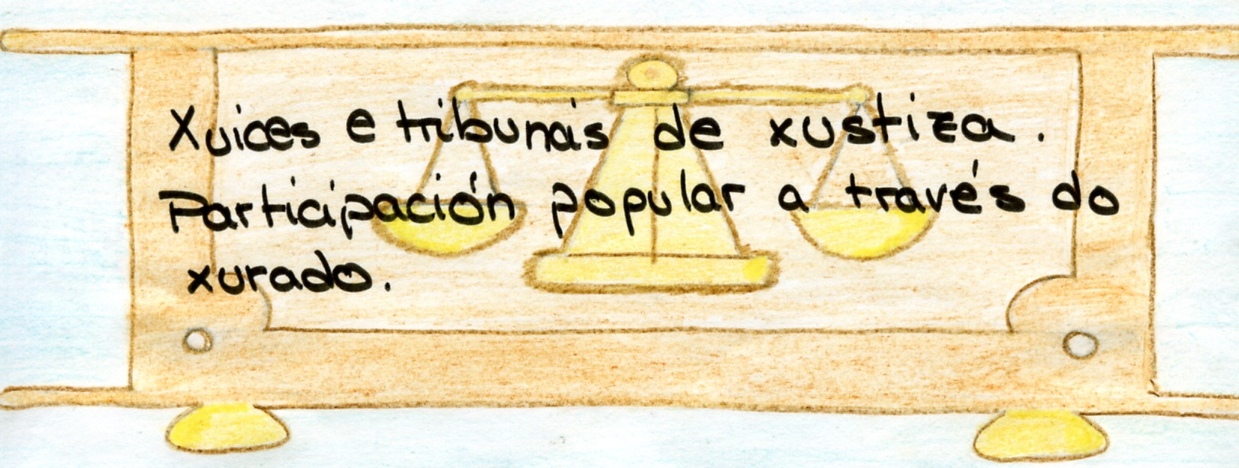 Xuices e tribunais de xustiza.
Participación popular a través do
xurado.